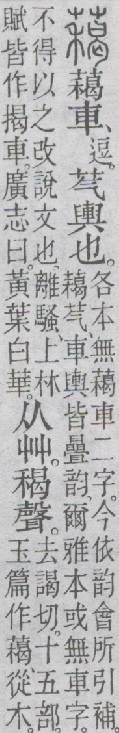 藒車、逗。芞輿也。
各本無藒車二字。今依韵會所引補。
藒芞、車輿皆疊韵。爾雅本或無車字。
不得以之改說文也。離騷、上林
賦皆作揭車。廣志曰。黃葉白華。
从艸。䅥聲。
去謁切。十五部。
玉篇作藒從木。